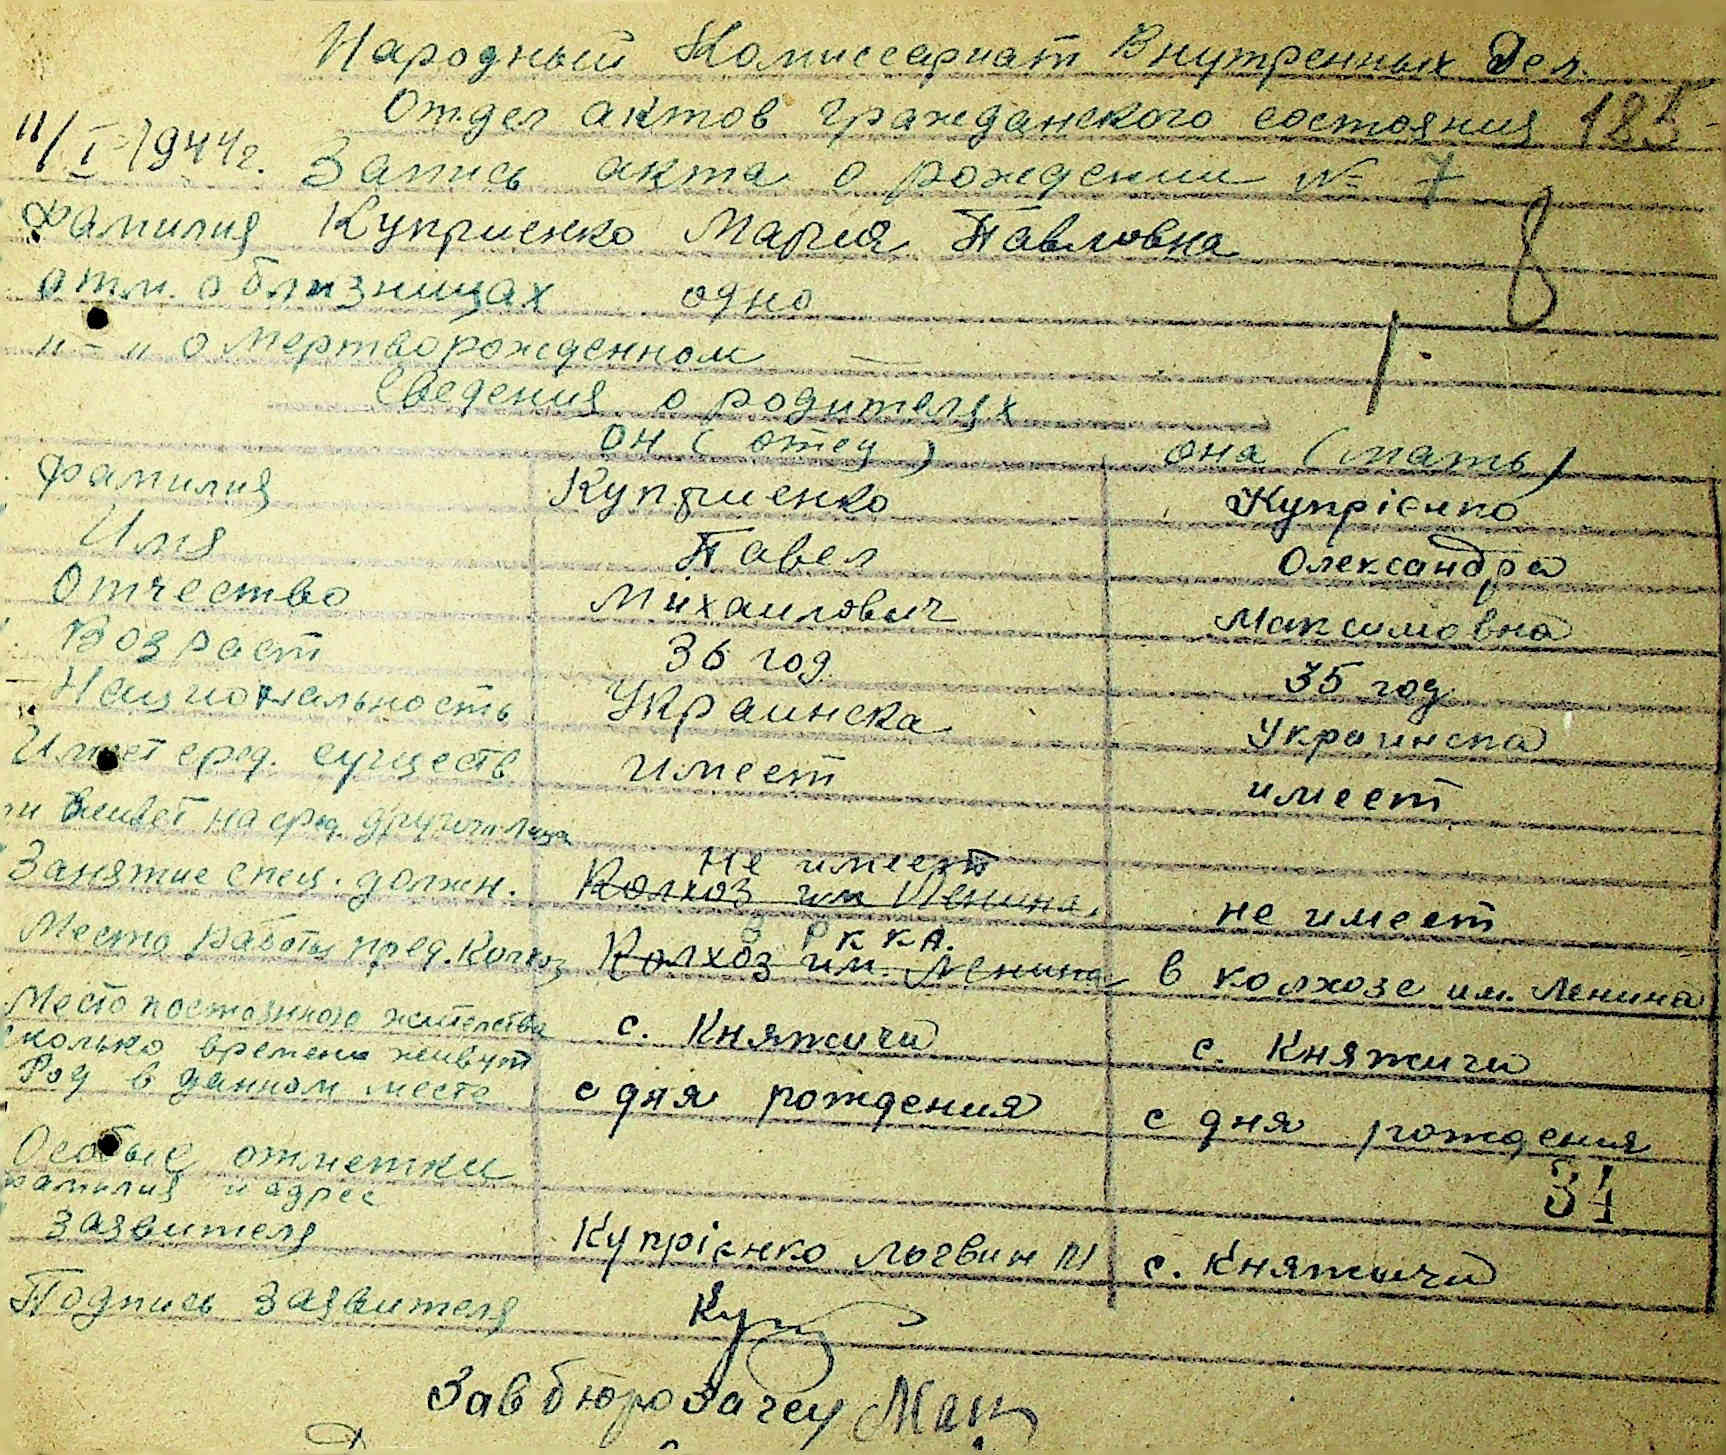 Народный Комиссариат Внутренных Дел.
Отдел актов гражданского состояния 185
11/I-1944г. Запись акта о рождении № 7
Фамилия Куприенко Мария Павловна 8
отм. о близницах одно
"-" о мертворожденном — 1.
Сведения о родителях
он (отец) она (мать)
Фамилия Куприенко Купрієнко
Имя Павел Олександра
Отчество Михаилович Максимовна
Возраст 36 год. 35 год
Национальность Украинска Украинска
Имеет сред. существ имеет имеет
и живет на сред. других лица
Занятие спец. должн. не имеет не имеет
Колхоз им Ленина.
Место работы пред. Колхоз в РККА. в колхозе им. Ленина
Колхоз им. Ленина
Место постоянного жительства с. Княжичи с. Княжичи
сколько времени живут
Род в данном месте с дня рождения с дня рождения
Особые отметки 34
фамилия и адрес
заявителя Купрієнко М с. Княжичи
Подпись заявителя Куп
Зав бюро Загсу Мац